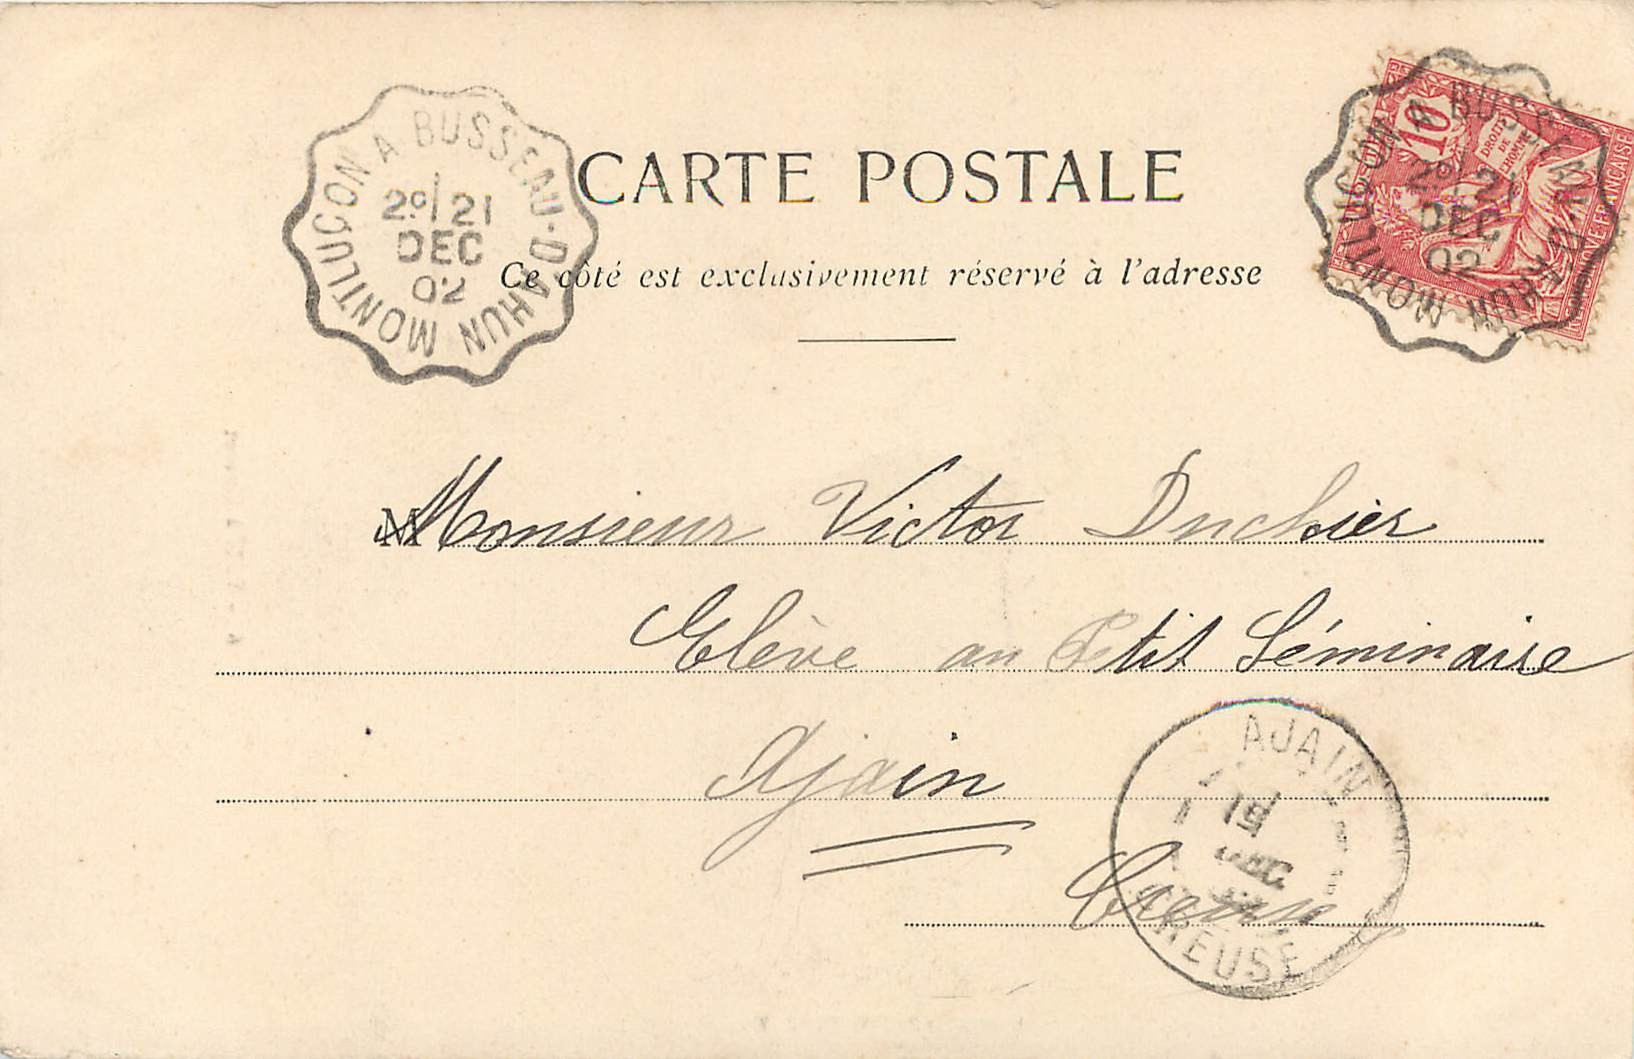 MONTLUÇON A BUSSEAU-D'AHUN
2º/21
DEC
02
CARTE POSTALE
Ce côté est exclusivement réservé à l'adresse
10
DROITS
DE
L'HOMME
RÉPUBLIQUE FRANÇAISE
MONTLUÇON A BUSSEAU-D'AHUN
2º/21
DEC
02
M
Monsieur Victor Duchier
Elève au Petit Séminaire
Ajain
Creuse
AJAIN
DEC
CREUSE